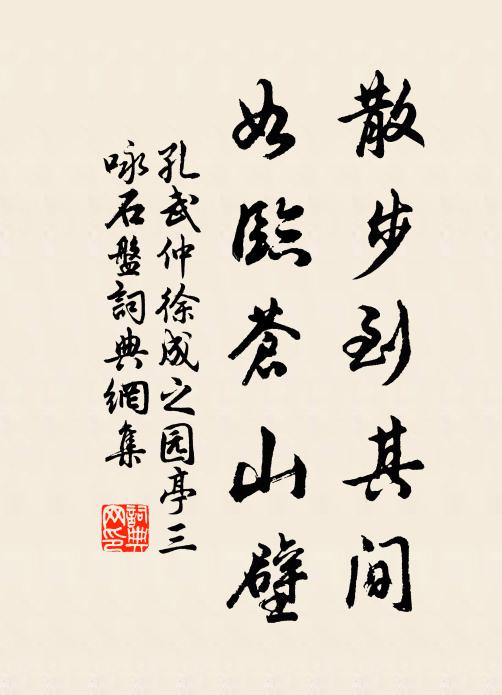 散步到其间
如临苍山壁
孔武仲徐成之园亭三
咏石盤詞典網集
詞典
网印